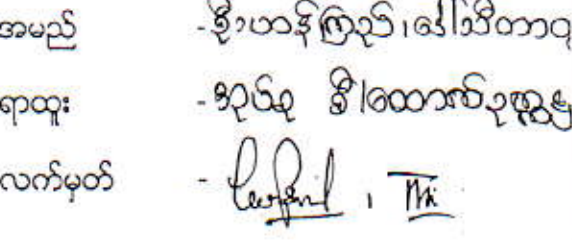 အမည် - ဦးဟန်ကြည်၊ ဒေါ်သီတာဝ
ရာထူး - အုပ်စု ဦး/ထောက်ဥက္ကဋ္ဌ
လက်မှတ် -